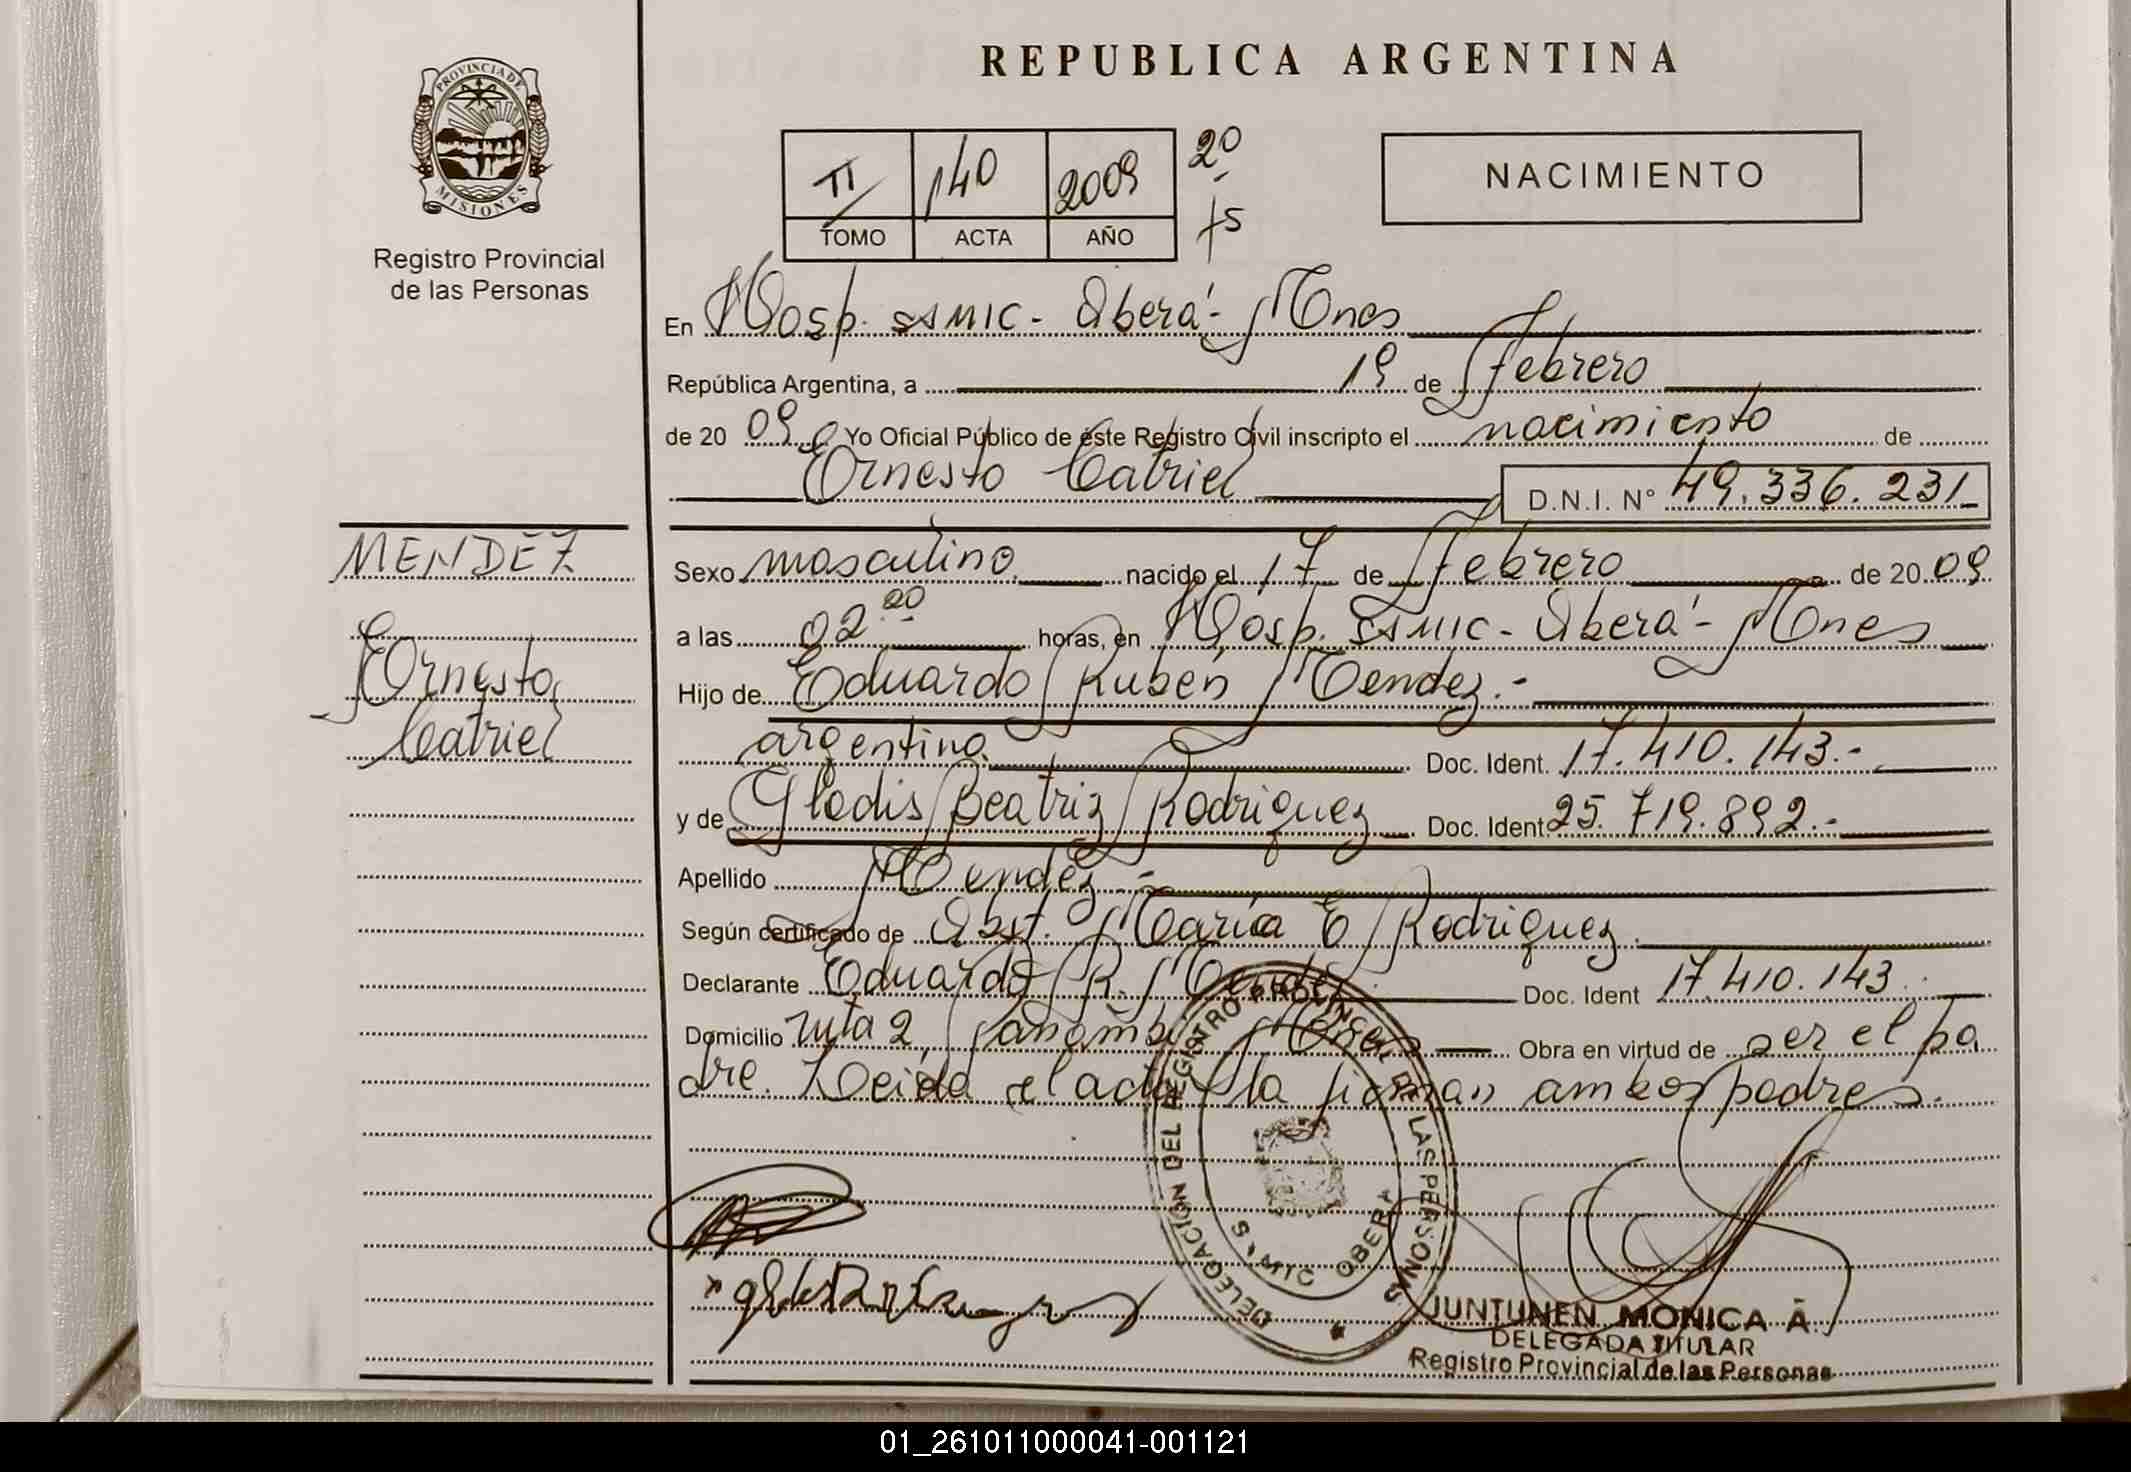 REPUBLICA ARGENTINA
PROVINCIA DE
MISIONES
Registro Provincial
de las Personas
II 140 2009 20
TOMO ACTA AÑO 75
NACIMIENTO
En Hosp. SAMIC - Oberá - Mnes
República Argentina, a 19 de Febrero
de 20 09 Yo Oficial Público de éste Registro Civil inscripto el nacimiento de
Ernesto Catriel D.N.I. N° 49.336.231
MENDEZ
Ernesto
Catriel
Sexo masculino nacido el 17 de Febrero de 20 09
a las 02 20 horas, en Hosp. SAMIC - Oberá - Mnes
Hijo de Eduardo Rubén Mendez.-
argentino Doc. Ident. 17.410.143.-
y de Gladis Beatriz Rodriguez Doc. Ident 25.719.892.-
Apellido Mendez.-
Según certificado de Obst. María E Rodriguez
Declarante Eduardo R. Mendez Doc. Ident 17.410.143
Domicilio ruta 2, Panambí Mnes Obra en virtud de ser el pa
dre. Leída el acta la firman ambos padres.
DELEGACION DEL REGISTRO PROVINCIAL DE LAS PERSONAS
SAMIC OBERA
JUNTUNEN MONICA A.
DELEGADA TITULAR
Registro Provincial de las Personas
01_261011000041-001121